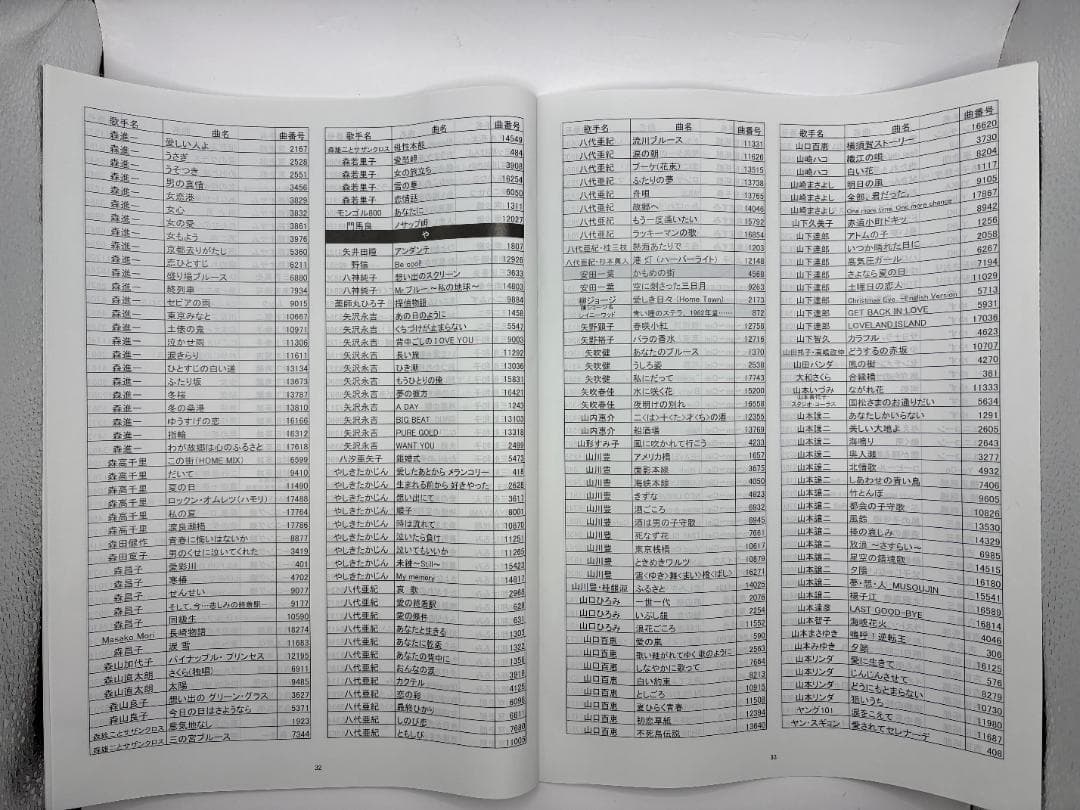 歌手名 曲名 曲番号
森進一 愛しい人よ 2167
森進一 うさぎ 2528
森進一 うそつき 2551
森進一 男の真情 3456
森進一 女恋港 3829
森進一 女心 3832
森進一 女の愛 3861
森進一 女もよう 3976
森進一 京都去りがたし 5360
森進一 恋ひとすじ 6211
森進一 盛り場ブルース 6880
森進一 終列車 7934
森進一 セピアの雨 9015
森進一 東京みなと 10667
森進一 土俵の鬼 10971
森進一 泣かせ雨 11306
森進一 涙きらり 11611
森進一 ひとすじの白い道 13134
森進一 ふたり坂 13673
森進一 冬桜 13787
森進一 冬の桑港 13810
森進一 ゆうすげの恋 16166
森進一 指輪 16312
森進一 わが故郷は心のふるさと 17648
森高千里 この街(HOME MIX) 6599
森高千里 だいて 9410
森高千里 夏の日 11490
森高千里 ロックン・オムレツ(ハモリ) 17488
森高千里 私の夏 17764
森高千里 渡良瀬橋 17786
森田健作 青春に悔いはないか 8877
森田童子 男のくせに泣いてくれた 3419
森昌子 愛彩川 401
森昌子 寒椿 4702
森昌子 せんせい 9077
森昌子 そして、今…悲しみの終着駅… 9177
森昌子 同級生 10590
Masako Mori 長崎物語 18274
森昌子 涙雪 11683
森山加代子 パイナップル・プリンセス 12195
森山直太朗 さくら(独唱) 6911
森山直太朗 太陽 9485
森山良子 想い出の グリーン・グラス 3627
森山良子 今日の日はさようなら 5371
森雄二とサザンクロス 意気地なし 1923
森雄二とサザンクロス 三の宮ブルース 7344
歌手名 曲名 曲番号
森雄二とサザンクロス 母性本能 14549
森若里子 愛愁岬 484
森若里子 女の旅立ち 3908
森若里子 雪の宴 16254
森若里子 恋情話 6050
モンゴル800 あなたに 1311
門馬良 ノサップ岬 12027
や
矢井田瞳 アンダンテ 1807
野猿 Be cool! 12926
八神純子 想い出のスクリーン 3633
八神純子 Mr.ブルー ～私の地球～ 14803
薬師丸ひろ子 探偵物語 9884
矢沢永吉 あの日のように 1458
矢沢永吉 くちづけが止まらない 5547
矢沢永吉 背中ごしのI LOVE YOU 9003
矢沢永吉 長い旅 11292
矢沢永吉 ひき潮 13036
矢沢永吉 もうひとりの俺 15831
矢沢永吉 夢の彼方 16421
矢沢永吉 A DAY 1243
矢沢永吉 BIG BEAT 13103
矢沢永吉 PURE GOLD 13318
矢沢永吉 WANT YOU 2499
八汐亜矢子 離婚式 5473
やしきたかじん 愛したあとから メランコリー 418
やしきたかじん 生まれる前から 好きやった 2628
やしきたかじん 想い出にて 3617
やしきたかじん 順子 8001
やしきたかじん 時は流れて 10870
やしきたかじん 泣いたら負け 11251
やしきたかじん 泣いてもいいか 11265
やしきたかじん 未練～Still～ 15423
やしきたかじん My memory 14817
八代亜紀 哀歌 2968
八代亜紀 愛の終着駅 628
八代亜紀 愛の条件 631
八代亜紀 あなたと生きる 1301
八代亜紀 あなたに乾盃 1322
八代亜紀 あなたの背中に 1356
八代亜紀 おんなの涙 3918
八代亜紀 カクテル 4125
八代亜紀 恋の彩 6096
八代亜紀 森終ひかり 6811
八代亜紀 しのび恋 7680
八代亜紀 ともしび 11005
32
歌手名 曲名 曲番号
八代亜紀 流川ブルース 11331
八代亜紀 涙の朝 11626
八代亜紀 ブーケ(花束) 13515
八代亜紀 ふたりの夢 13738
八代亜紀 舟唄 13765
八代亜紀 故郷へ 14046
八代亜紀 もう一度逢いたい 15792
八代亜紀 ラッキーマンの歌 16854
八代亜紀・桂三枝 熱海あたりで 1203
八代亜紀・杉本眞人 港 灯(ハーバーライト) 12148
安田一葉 かもめの街 4569
安田一葉 空に刺さった三日月 9263
柳ジョージ 愛しき日々(Home Town) 2173
柳ジョージ&レイニーウッド 青い瞳のステラ、1962年夏…… 872
矢野顕子 春咲小紅 12759
矢野裕子 バラの香水 12716
矢吹健 あなたのブルース 1370
矢吹健 うしろ姿 2538
矢吹健 私にだって 17743
矢吹春佳 水に咲く花 15200
矢吹春佳 夜明けの別れ 16558
山内惠介 二く(は)十く(た)才くち(の)酒 12355
山内惠介 船酒場 13769
山形すみ子 風に吹かれて行こう 4233
山川豊 アメリカ橋 1657
山川豊 面影本線 3675
山川豊 海峡本線 4050
山川豊 きずな 4823
山川豊 酒ごころ 6932
山川豊 酒は男の子守歌 6945
山川豊 死なず花 7661
山川豊 東京桟橋 10617
山川豊 ときめきワルツ 10879
山川豊 雪(ゆき)舞(まい)橋(ばし) 16271
山川豊・桂銀淑 ふるさと 14025
山口ひろみ 一世一代 2076
山口ひろみ いぶし銀 2254
山口ひろみ 浪花ごころ 11552
山口百恵 愛の嵐 590
山口百恵 歌い継がれてゆく歌のように 2563
山口百恵 しなやかに歌って 7664
山口百恵 白い約束 8213
山口百恵 としごろ 10915
山口百恵 夏ひらく青春 11508
山口百恵 初恋草紙 12394
山口百恵 不死鳥伝説 13640
33
歌手名 曲名 曲番号
山口百恵 横須賀ストーリー 16620
山崎ハコ 織江の唄 3730
山崎ハコ 白い花 8204
山崎まさよし 明日の風 1117
山崎まさよし 全部、君だった。 9105
山崎まさよし One more time,One more chance 17867
山下久美子 赤道小町ドキッ 8942
山下達郎 アトムの子 1256
山下達郎 いつか晴れた日に 2058
山下達郎 高気圧ガール 6267
山下達郎 さよなら夏の日 7194
山下達郎 土曜日の恋人 11029
山下達郎 Christmas Eve －English Version 5713
山下達郎 GET BACK IN LOVE 5931
山下達郎 LOVELAND,ISLAND 17036
山下智久 カラフル 4623
山田邦子・高嶋政伸 どうするの赤坂 10707
山田パンダ 風の街 4270
大和さくら 合縁橋 361
山本いづみ ながれ花 11333
スタジオ・コーラス 国松さまのお通りだい 5634
山本譲二 あなたしかいらない 1291
山本譲二 美しい大地よ 2605
山本譲二 海鳴り 2643
山本譲二 奥入瀬 3277
山本譲二 北情歌 4932
山本譲二 しあわせの青い鳥 7406
山本譲二 竹とんぼ 9605
山本譲二 都会の子守歌 10826
山本譲二 風鈴 13530
山本譲二 棒の哀しみ 14329
山本譲二 放浪 ～さすらい～ 6985
山本譲二 星空の鎮魂歌 14515
山本譲二 夕陽 16180
山本譲二 夢・想・人 MUSOUJIN 15541
山本譲二 揚子江 16589
山本達彦 LAST GOOD-BYE 16814
山本智子 海峡花火 4046
山本まさゆき 嗚呼!逆転王 306
山本みゆき 夕顔 16125
山本リンダ 愛に生きて 576
山本リンダ じんじんさせて 8279
山本リンダ どうにもとまらない 10730
山本リンダ 狙いうち 11980
ヤング101 涙をこえて 11687
ヤン・スギョン 愛されてセレナーデ 408